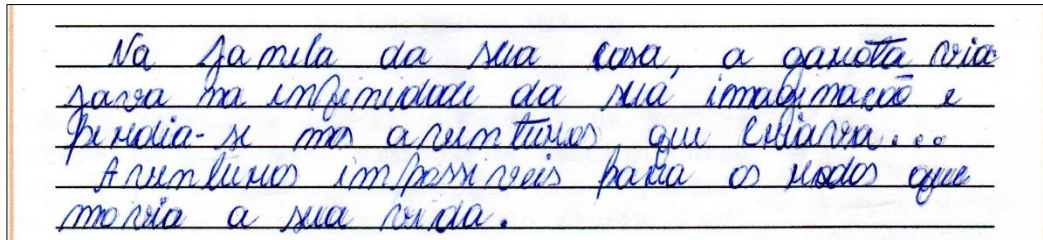 Na janela da sua casa, a garota via-
java na infinidade da sua imaginação e
perdia-se nas aventuras que criava...
Aventuras impossíveis para os que
a sua vida.